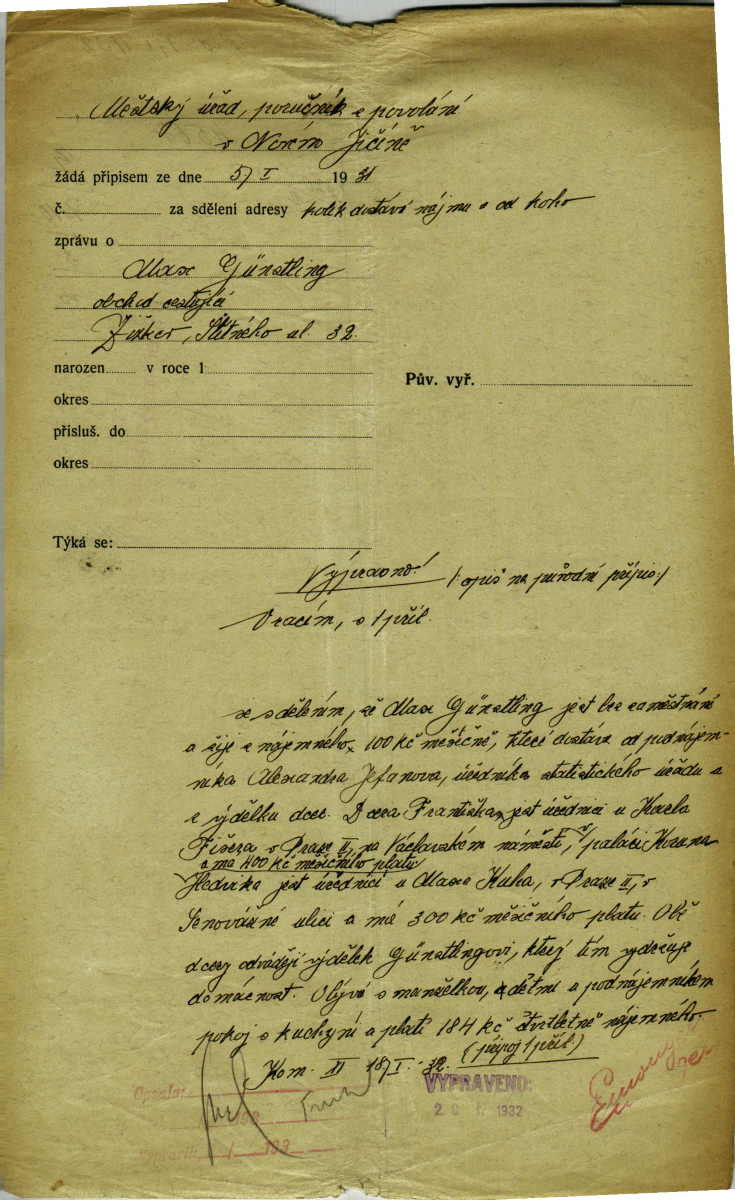 Městský úřad, poručník z povolání
v Novém Jičíně
žádá přípisem ze dne 5/ I 1931
č. za sdělení adresy kolik dostává nájmu a od koho
zprávu o
Max Günstling
obchod cestující
Žižkov, Štítného ul. 32.
narozen v roce 1
Pův. vyř.
okres
přísluš. do
okres
Týká se:
Výpravně! /: opis na původní přípis :/
Vracím, s 1 příl.
se sdělením, že Max Günstling jest bez zaměstnání
a žije z nájemného 100 Kč měsíčně, které dostává od podnájem-
níka Alexandra Jefanova, úředníka statistického úřadu a
z výdělku dcer. Dcera Františka jest úřednicí u Karla
Fišera v Praze II, na Václavském náměstí, v paláci Koruna
a má 400 Kč měsíčního platu
Hedvika jest úřednicí u Maxe Kuha, v Praze II, v
Senovážné ulici a má 300 Kč měsíčního platu. Obě
dcery odvádějí výdělek Günstlingovi, který tím vydržuje
domácnost. Obývá s manželkou, dětmi a podnájemníkem
pokoj s kuchyní a platí 184 Kč čtvrtletně nájemného.
(připoj 1 příl)
Kom. XI 18/I. 32.
VYPRAVENO:
1932